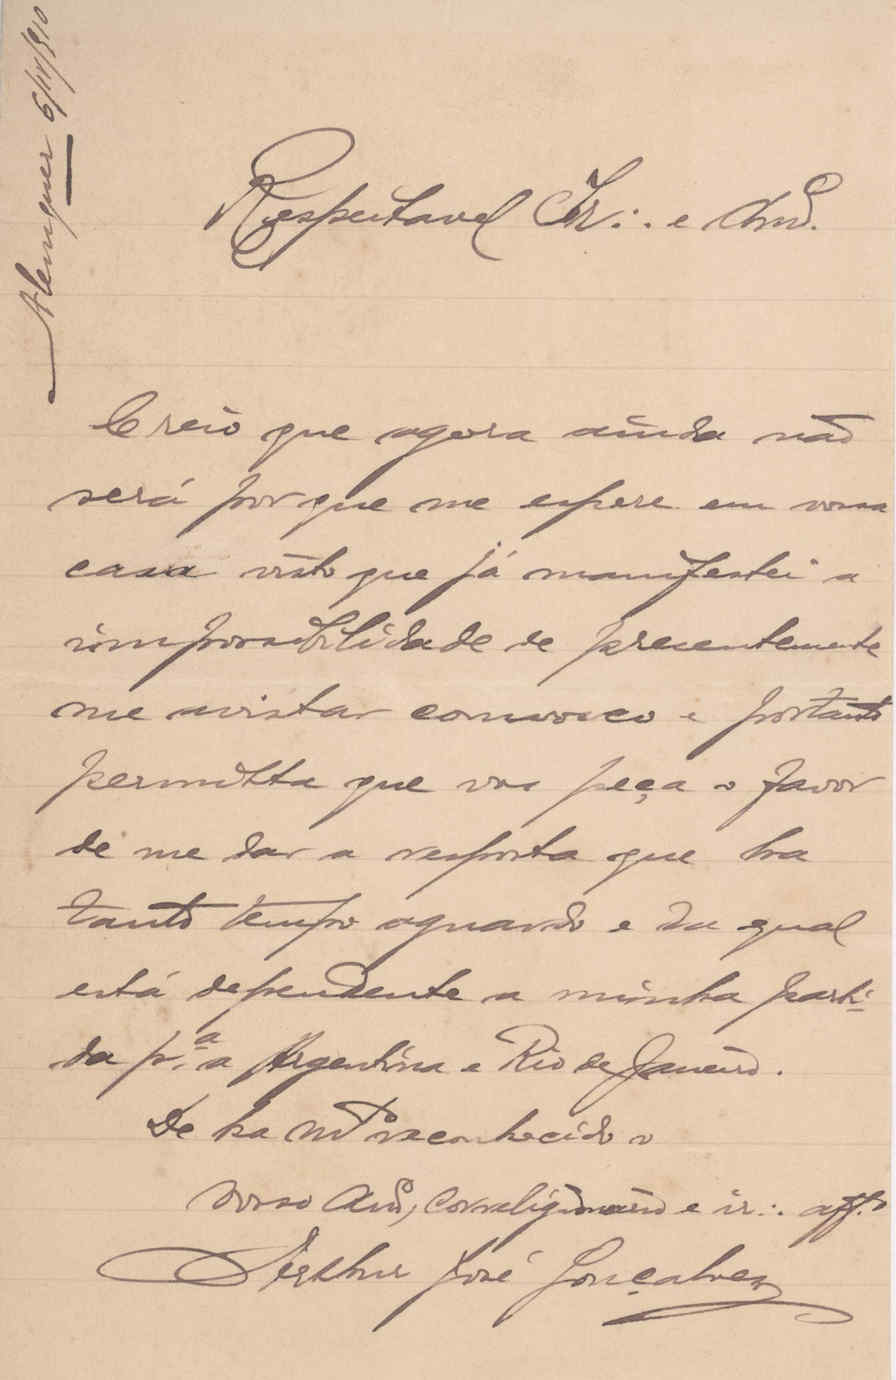 Alemquer 6/IV/910
Respeitavel Ir∴ e Amº.
Creio que agora ainda não
será porque me espere em vossa
casa visto que já manifestei a
impossibilidade de presentemente
me avistar comvosco e portanto
permitta que vos peça o favor
de me dar a resposta que ha
tanto tempo aguardo e da qual
está dependente a minha parti-
da p.ª a Argentina e Rio de Janeiro.
De ha mtº reconhecido o
vosso Amº, correligionario e ir∴ aff.º
Arthur José Gonçalves